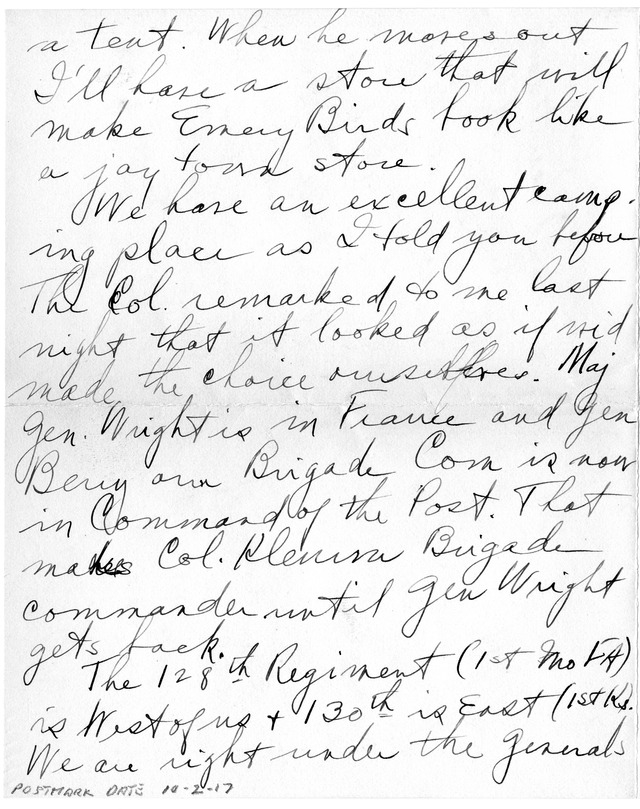 a tent. When he moves out
I'll have a store that will
make Emery Birds look like
a jay town store.
We have an excellent camp-
ing place as I told you before
The Col. remarked to me last
night that it looked as if we'd
made the choice ourselfves. Maj
Gen. Wright is in France and Gen
Berry our Brigade Com is now
in Command of the Post. That
makes Col. Klemm Brigade
commander until Gen Wright
gets back.
The 128th Regiment (1st Mo FA)
is West of us + 130th is East (1st Ks.
We are right under the Generals
POSTMARK DATE 10-2-17